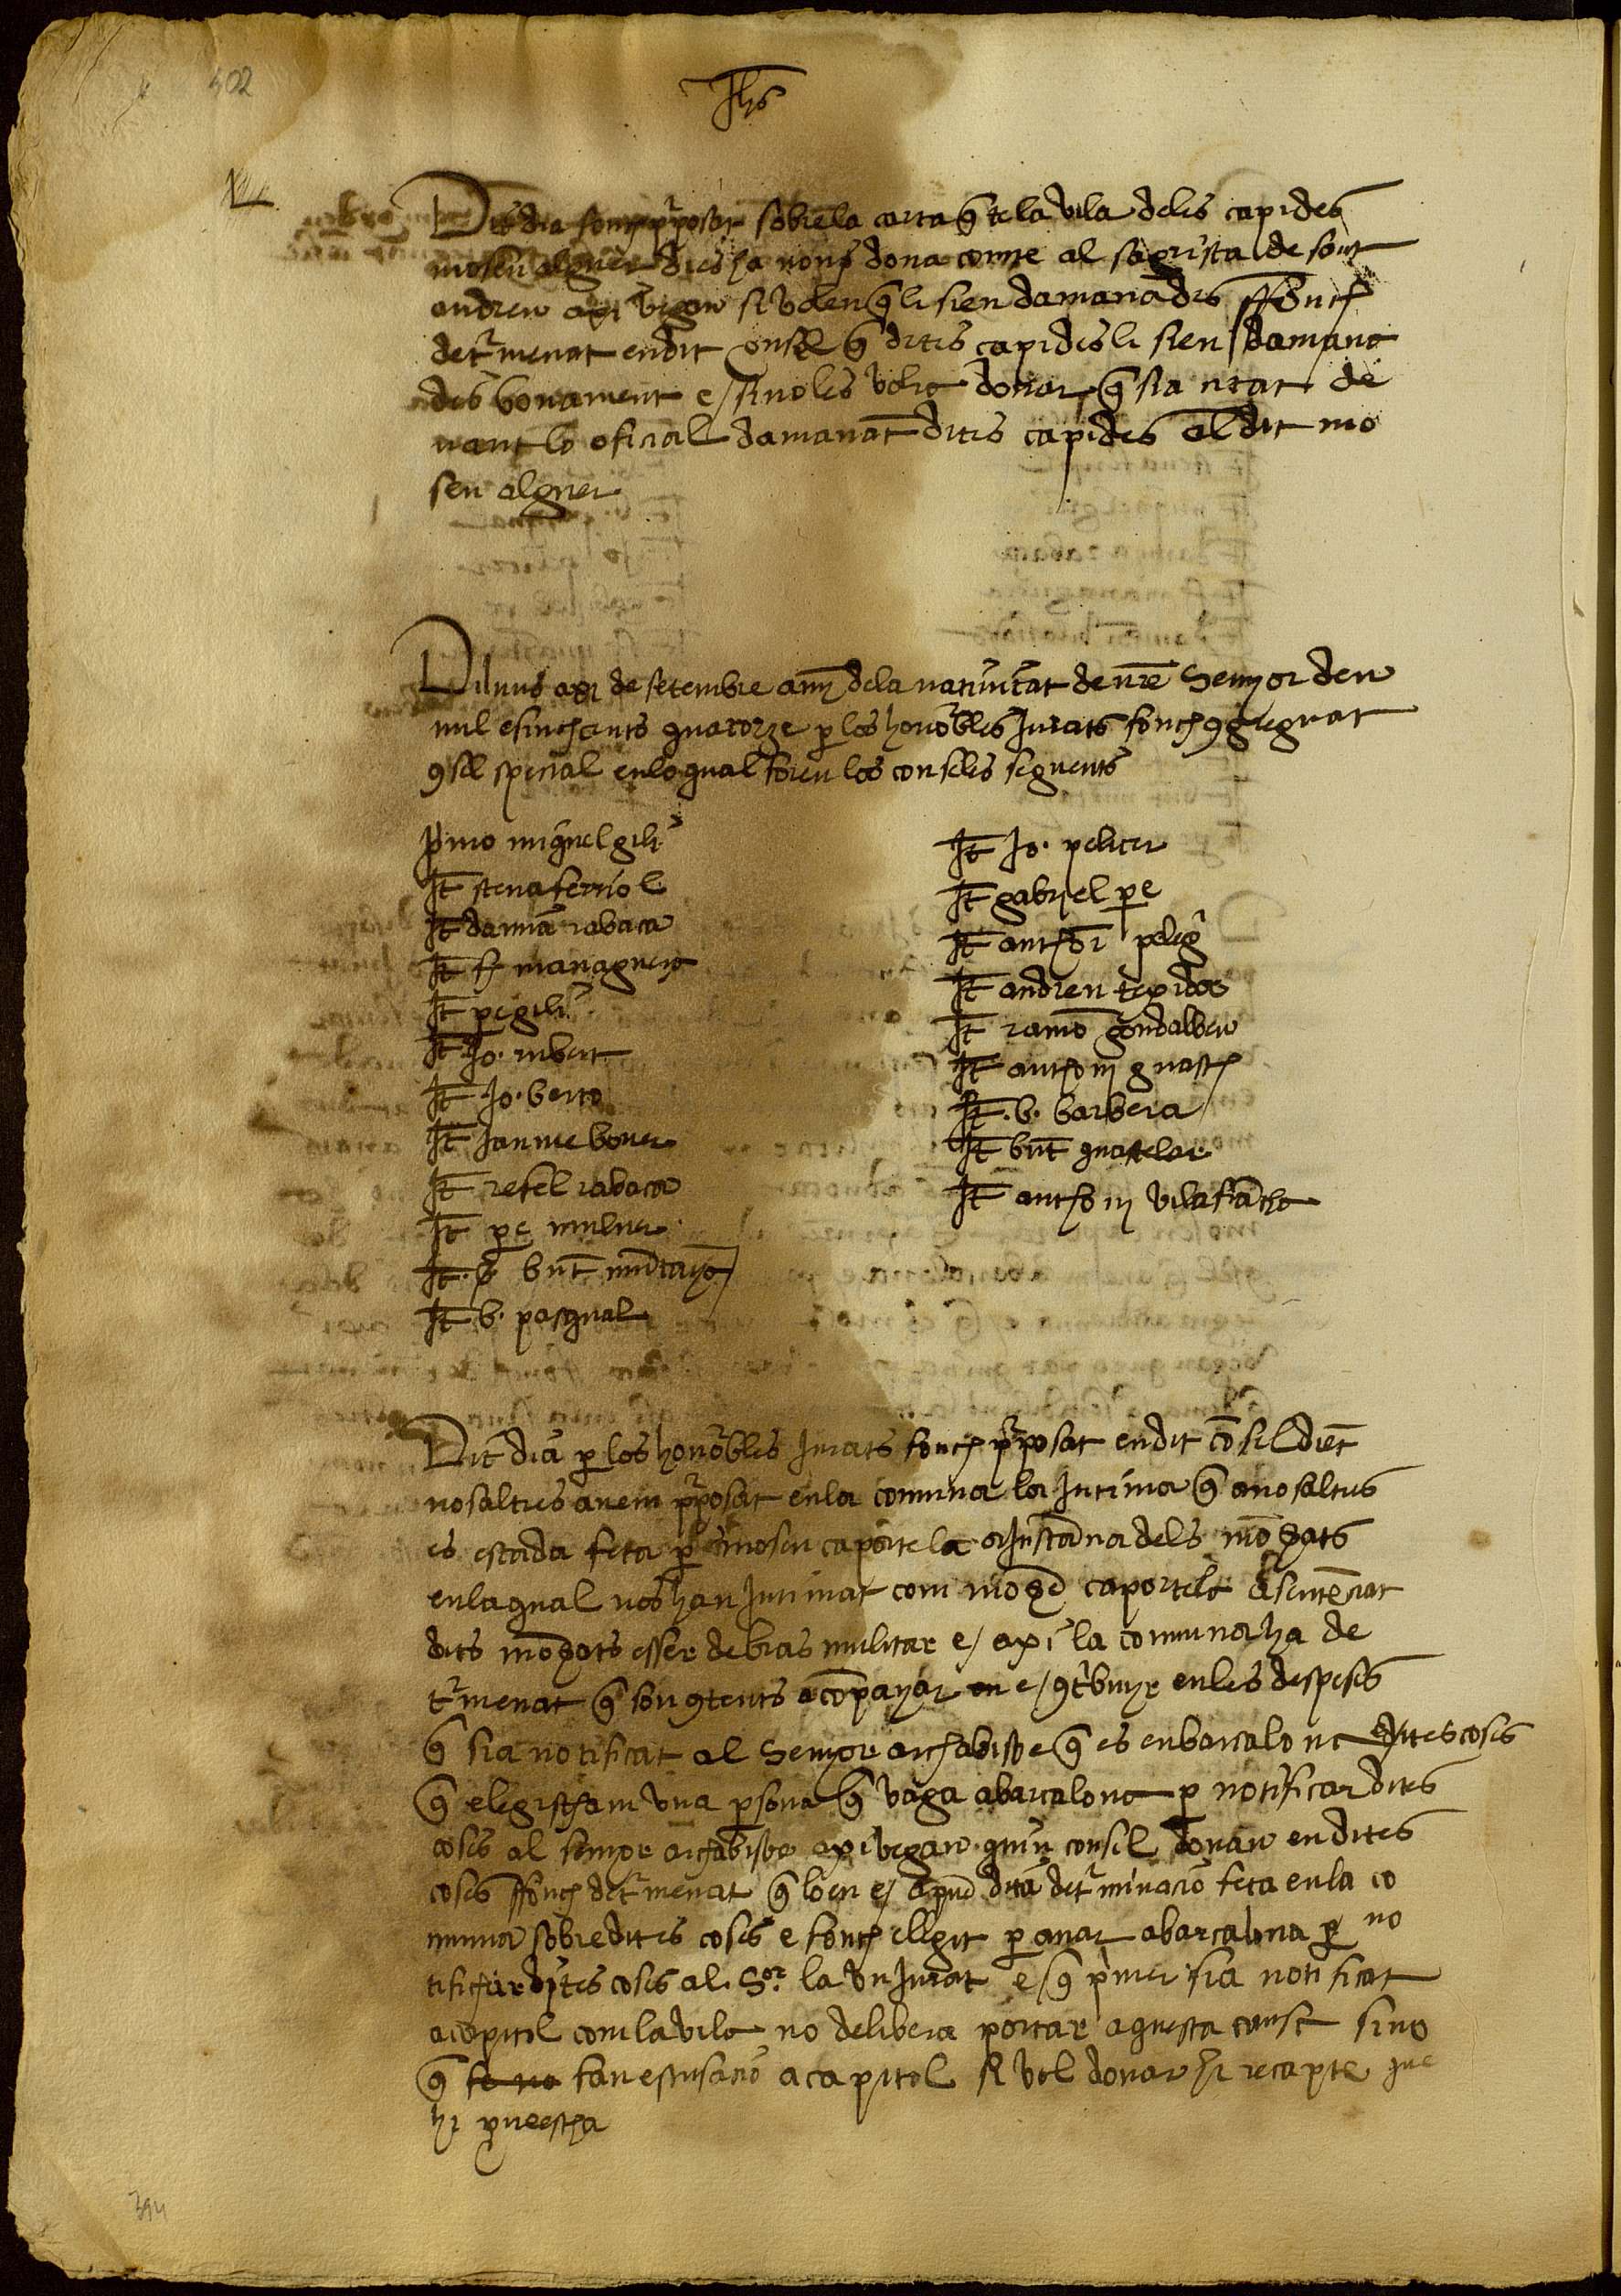 302
Jhs
Dit dia fonch pposat sobre la carta q̃ te la vila deles capides
mosen alguer dies ha nons dona conte al sagrista de sent
andreu axi vegen si volen q̃ li sien damanades ffonch
det'menat en dit consell q̃ dites capides li sien damana
des bonament e/ si no les volra donar q̃ sia citat de
vant lo oficial damanat dites capides al dit mo
sen alguer
Diluns a xi de setembre any dela nativitat de nr̃e Senyor deu
mil e sinch cents quatorze p los honorbles Jurats fonch 9gregat
9sell special en lo qual foren los consellers seguents
p̃mo miquel gili
It steva ferriol
It damia rabaca
It f maraguera
It pe gili
It Jo. rubert
It Jo. berto
It Jaume bover
It refel rabaca
It pe muluer
It b. pasqual
It Jo. pelicer
It gabriel pe
It anthoni peleg
It andreu tepidor
It ramo gondalbeu
It anthoni guasch
It b. barbera
It bnt guastelar
It anthoni vilafracha
Dit dia p los honorbles Jurats fonch pposat en dit cosil dient
nosaltres avem pposat en la comuna la Intima q̃ a nosaltres
es estada feta p mosen caportela a Instancia dels mo
en la qual nos han Intimat com mo caportela a sentēciat
dits mo esser de bras militar e/ axi la comuna ha de
t'menat q̃ son 9tents acōpanyar en e/ 9t'buyr en les despeses
q̃ sia notificat al Senyor archabisbe q̃ es en barcalona dites coses
q̃ elegischam una psona q̃ vaga a barcalona p notificar dites
coses al senyor archabisbe axi vegan quin consel donan en dites
coses ffonch det'menat q̃ loen e/ dita det'minacio feta en la co
muna sobre dites coses e fonch elegit p anar a barcalona p no
tificar dites coses al Sor la un Jurat e/ q̃ p'mer sia notificat
a capitol com la vila no delibera portar aquesta causa sino
q̃ fe no fan escusacio a capitol si vol donar hi recapte que
hi proveescha
394